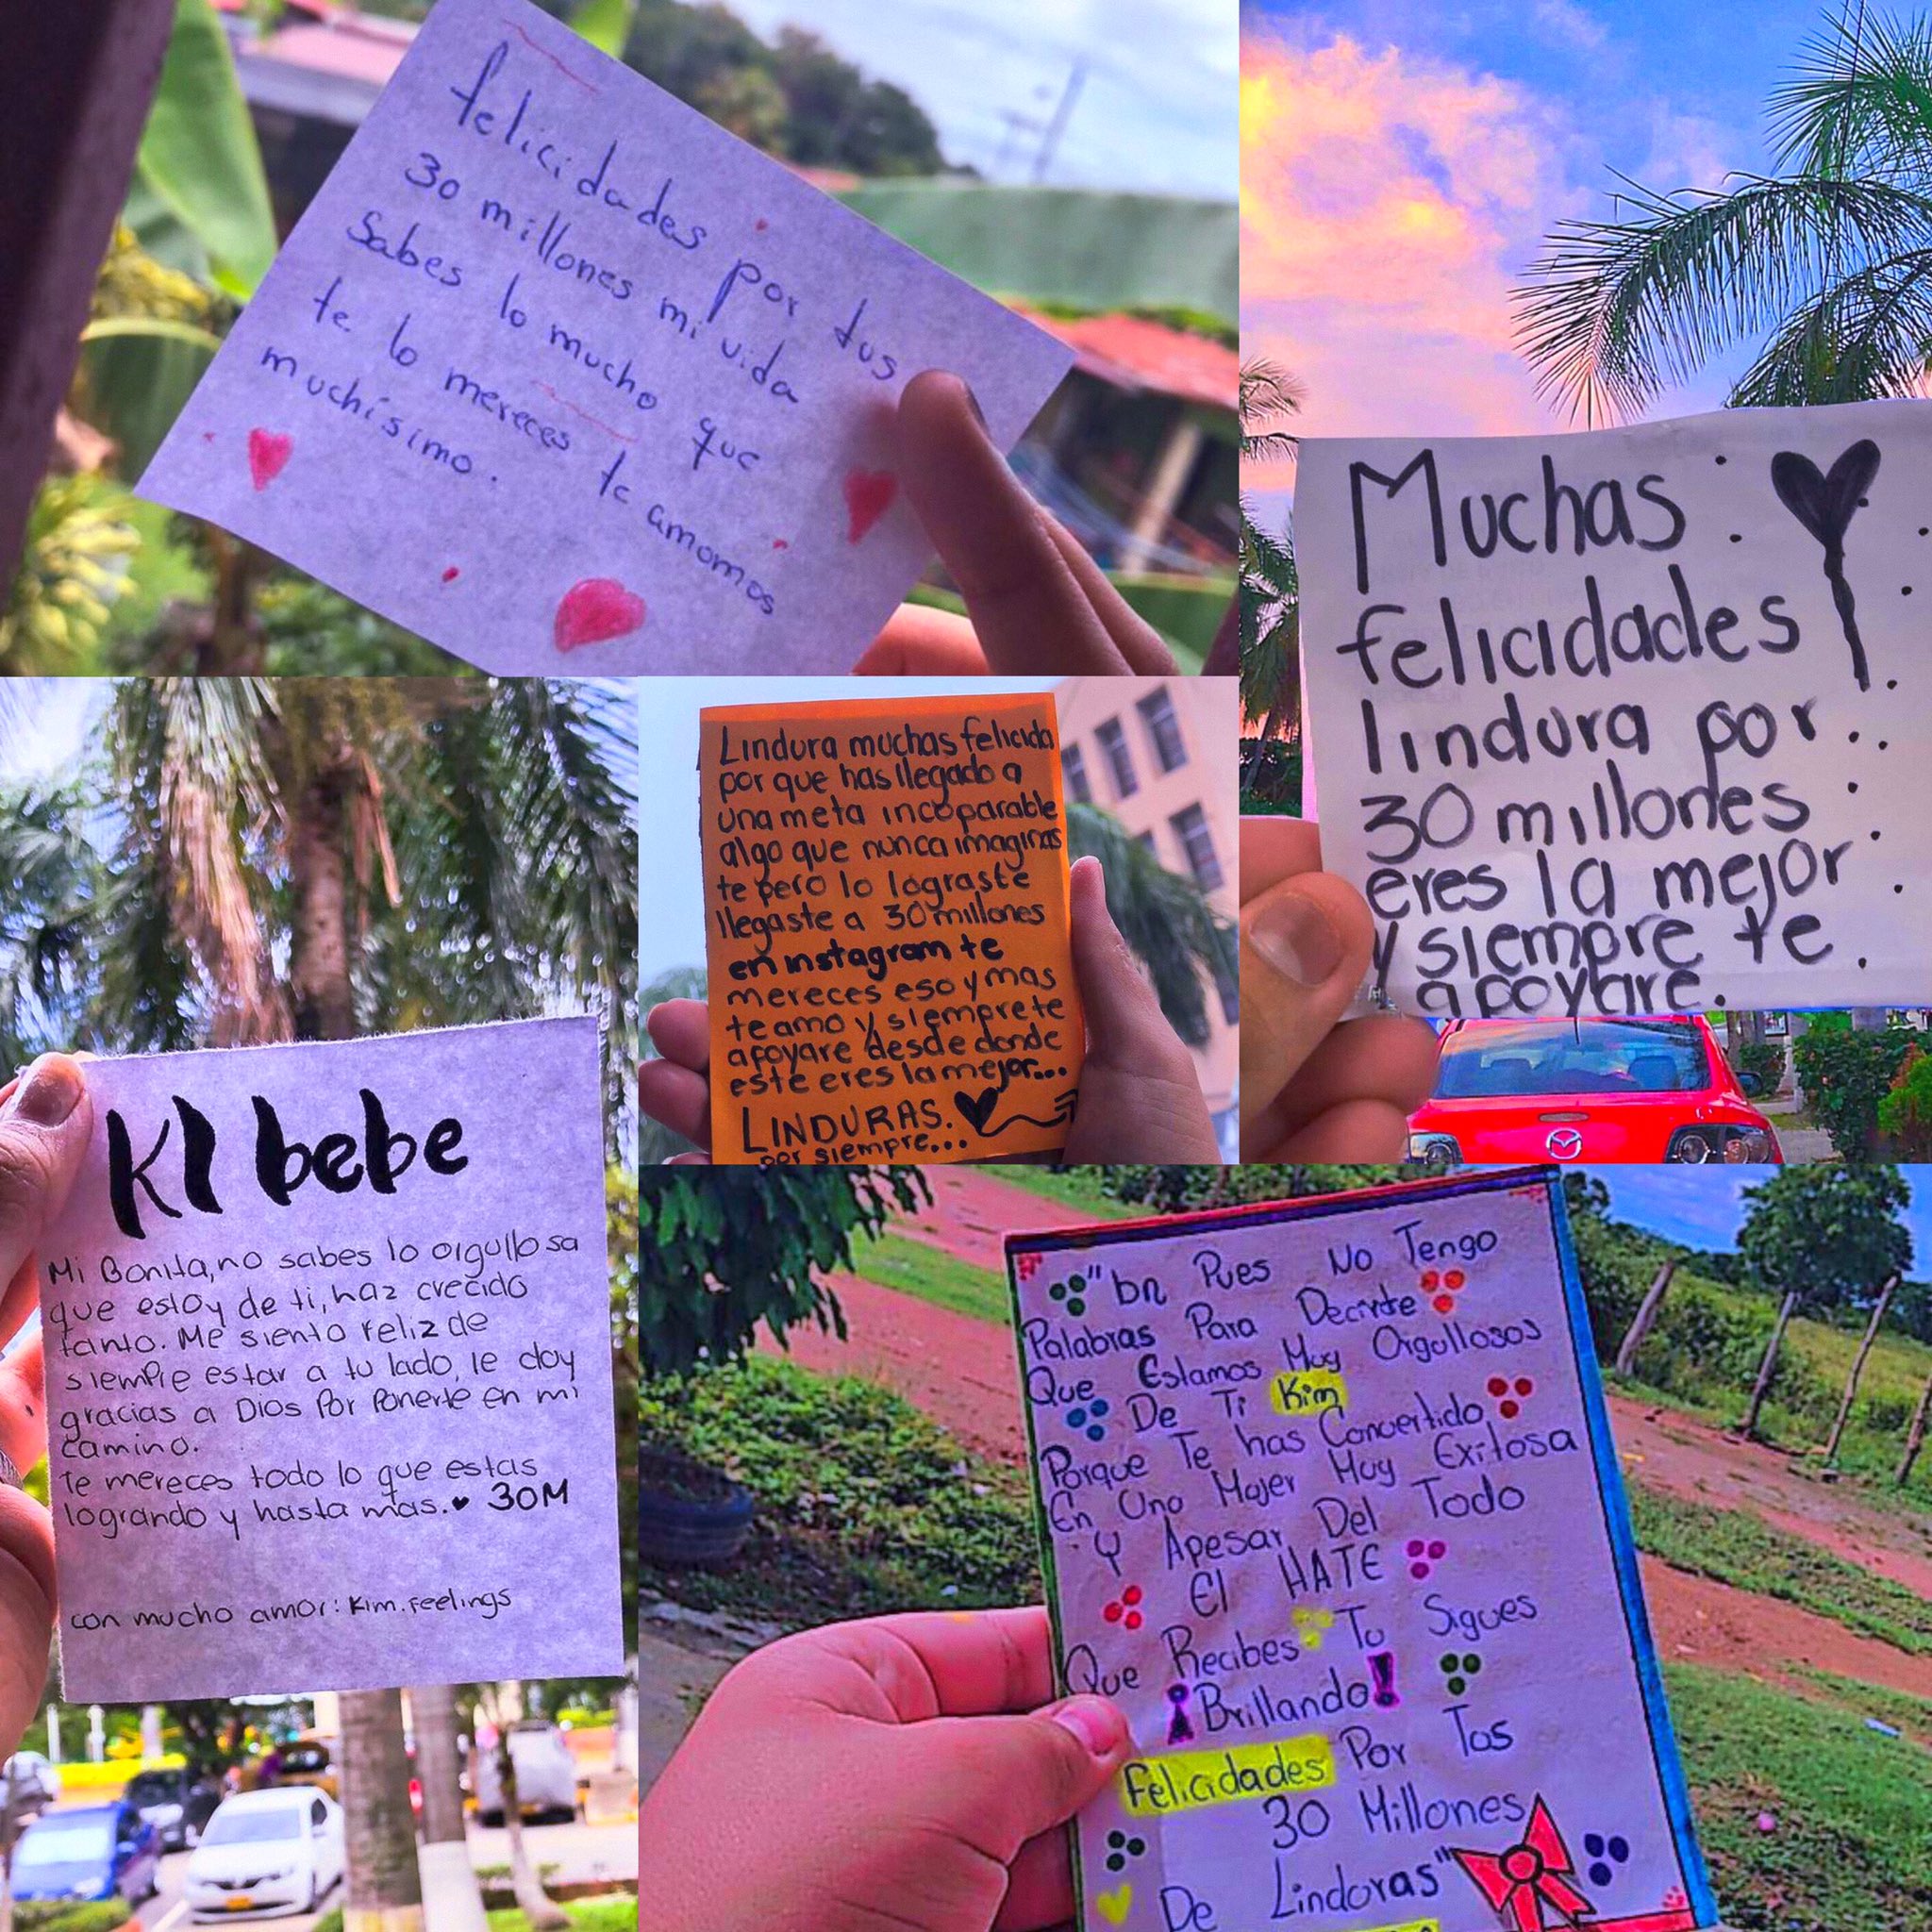 felicidades por tus
30 millones mi vida
Sabes lo mucho que
te lo mereces te amamos
muchísimo.
Muchas
felicidades
lindura por
30 millones
eres la mejor
y siempre te
apoyare.
Lindura muchas felicida
por que has llegado a
una meta incoparable
algo que nunca imaginas
te pero lo lograste
llegaste a 30 millones
en instagram te
mereces eso y mas
te amo y siempre te
apoyare desde donde
este eres la mejor...
LINDURAS.
por siempre...
KI bebe
Mi Bonita, no sabes lo orgullosa
que estoy de ti, haz crecido
tanto. Me siento feliz de
siempre estar a tu lado, le doy
gracias a Dios Por Ponerte en mi
camino.
te mereces todo lo que estas
logrando y hasta mas. ♥ 30M
con mucho amor: Kim.feelings
"bn Pues No Tengo
Palabras Para Decirte
Que Estamos Muy Orgullosos
De Ti Kim
Porque Te has Convertido
En Una Mujer Muy Exitosa
Y Apesar Del Todo
El HATE
Que Recibes Tu Sigues
¡Brillando!
Felicidades Por Tus
30 Millones
De Linduras"